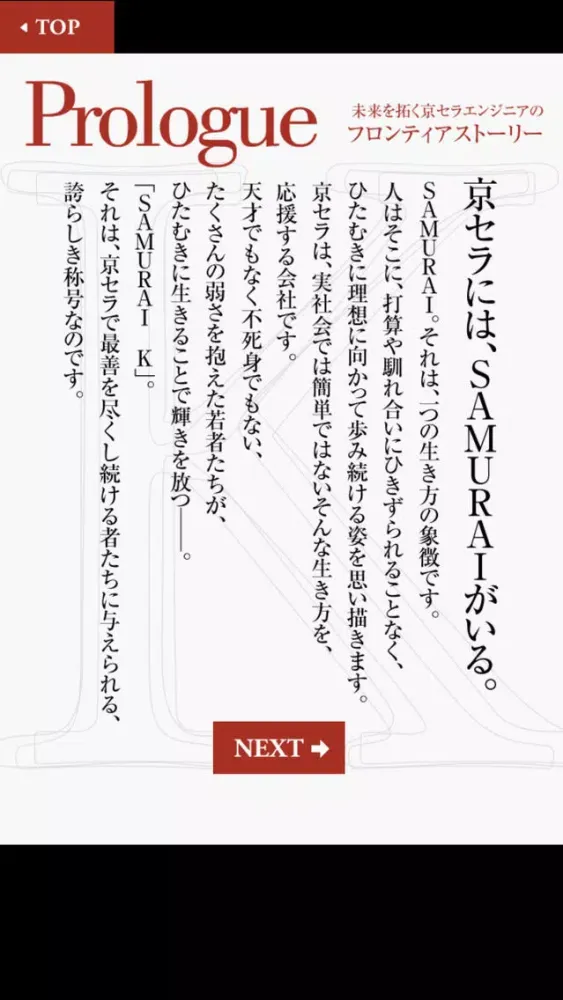 TOP
Prologue
未来を拓く京セラエンジニアの
フロンティアストーリー
京セラには、SAMURAIがいる。
SAMURAI。それは、一つの生き方の象徴です。
人はそこに、打算や馴れ合いにひきずられることなく、
ひたむきに理想に向かって歩み続ける姿を思い描きます。
京セラは、実社会では簡単ではないそんな生き方を、
応援する会社です。
天才でもなく不死身でもない、
たくさんの弱さを抱えた若者たちが、
ひたむきに生きることで輝きを放つ——。
「SAMURAI　K」。
それは、京セラで最善を尽くし続ける者たちに与えられる、
誇らしき称号なのです。
NEXT